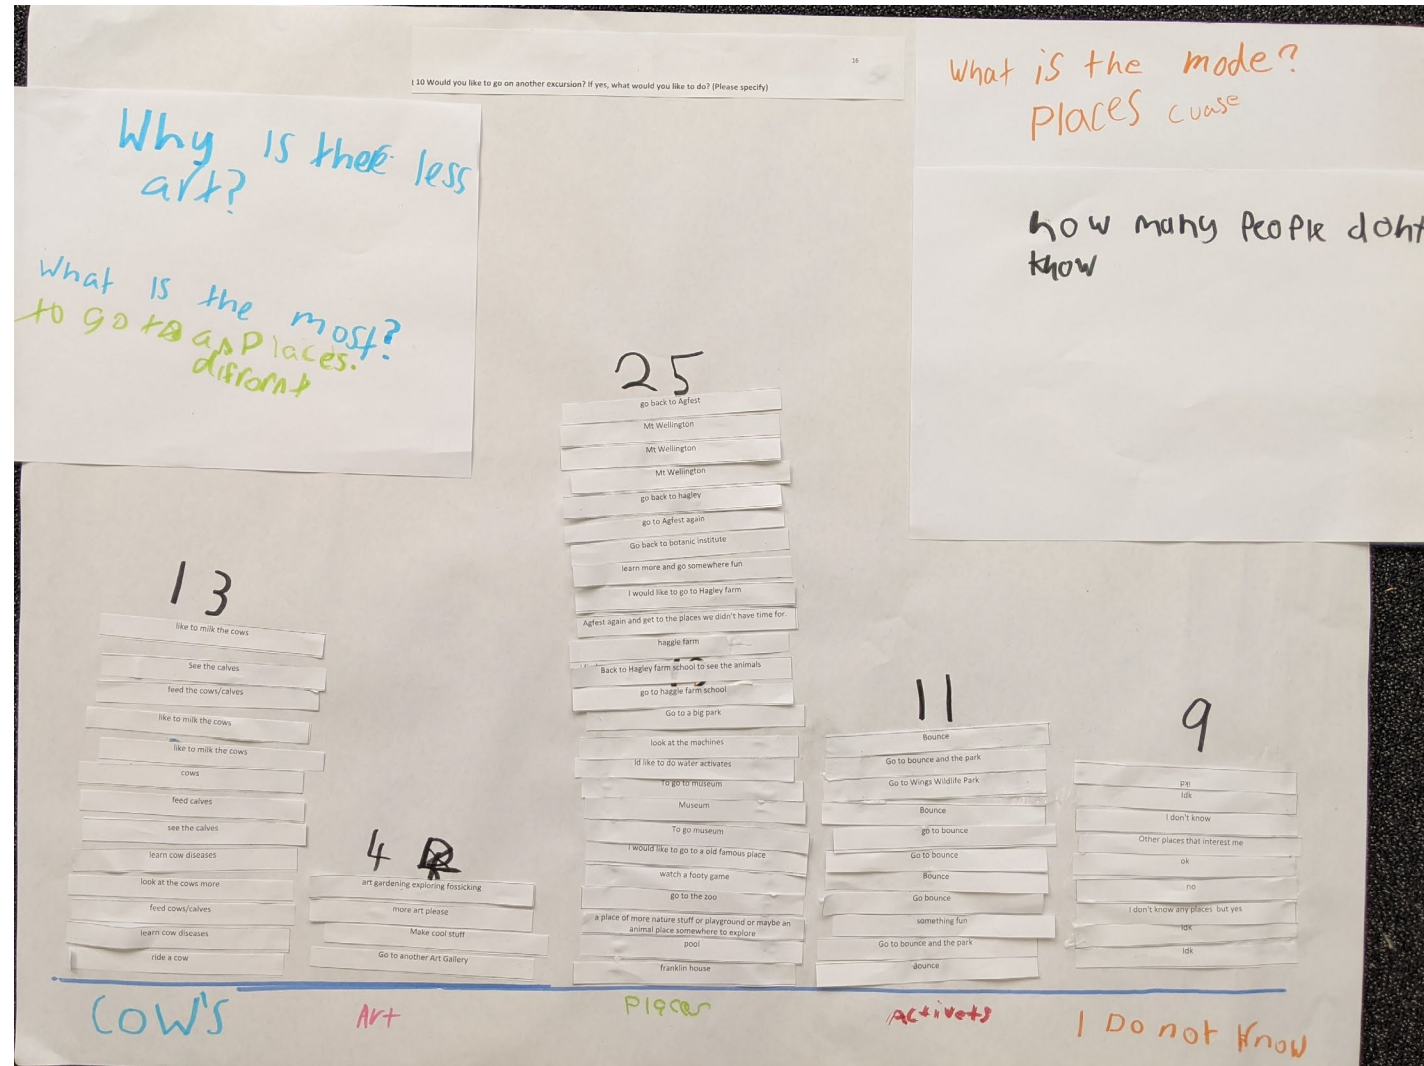 16
10 Would you like to go on another excursion? If yes, what would you like to do? (Please specify)
Why is there less
art?
What is the most?
to go to a places.
difrornt
What is the mode?
Places cuase
how many People dont
know
13
like to milk the cows
See the calves
feed the cows/calves
like to milk the cows
like to milk the cows
cows
feed calves
see the calves
learn cow diseases
look at the cows more
feed cows/calves
learn cow diseases
ride a cow
COW'S
4
art gardening exploring fossicking
more art please
Make cool stuff
Go to another Art Gallery
Art
25
go back to Agfest
Mt Wellington
Mt Wellington
Mt Wellington
go back to hagley
go to Agfest again
Go back to botanic institute
learn more and go somewhere fun
I would like to go to Hagley farm
Agfest again and get to the places we didn't have time for
haggie farm
Back to Hagley farm school to see the animals
go to haggle farm school
Go to a big park
look at the machines
Id like to do water activates
To go to museum
Museum
To go museum
I would like to go to a old famous place
watch a footy game
go to the zoo
a place of more nature stuff or playground or maybe an
animal place somewhere to explore
pool
franklin house
Places
11
Bounce
Go to bounce and the park
Go to Wings Wildlife Park
Bounce
go to bounce
Go to bounce
Bounce
Go bounce
something fun
Go to bounce and the park
Bounce
Activets
9
Idk
I don't know
Other places that interest me
ok
no
I don't know any places but yes
Idk
Idk
I Do not Know